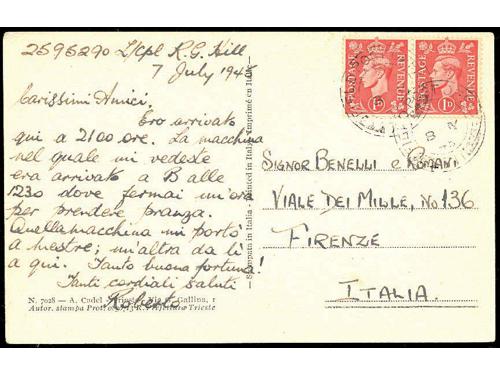 2595290 L/Cpl R.G. Hill
7 July 194
Carissimi Amici.
Ero arrivato
qui a 2100 ore. La macchina
nel quale mi vedeste
era arrivato a B alle
1230 dove fermai un'ora
per prendere pranza.
Quella macchina mi portò
a Mestre; un'altra da lì
a qui. Tanto buona fortuna!
Tanti cordiali saluti
Roberto
N. 7028 — A. Cadel - Trieste, Via G. Gallina, 1
Autor. stampa Trieste
Stampata in Italia - Printed in Italy - Imprimé en Italie
POSTAGE REVENUE
1D
POSTAGE REVENUE
1D
Signor Benelli e Romani
Viale Dei Mille, No 136
Firenze
Italia.